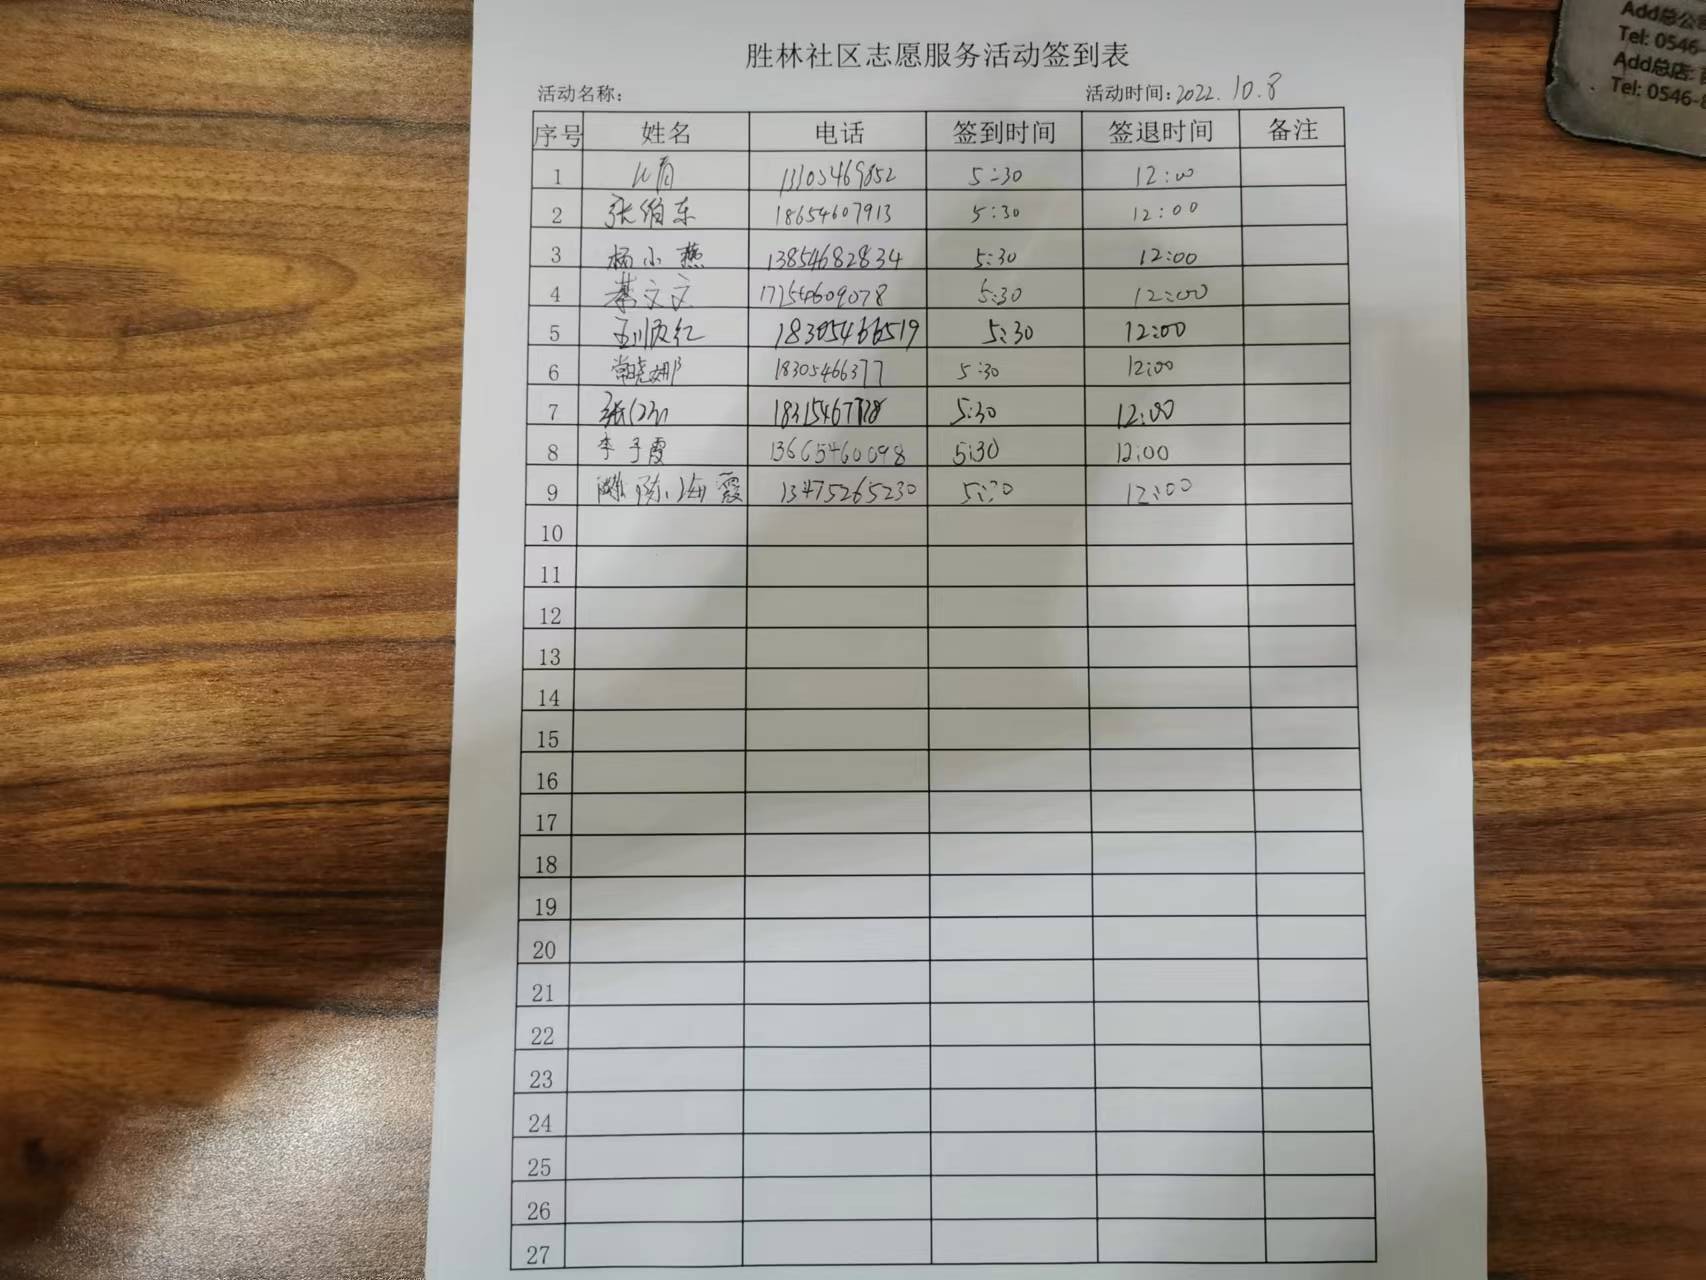 胜林社区志愿服务活动签到表
活动名称: 活动时间:2022.10.8
序号 姓名 电话 签到时间 签退时间 备注
1 5:30 12:00
2 张伯东 18654607913 5:30 12:00
3 杨小燕 13854682834 5:30 12:00
4 文文 17754609078 5:30 12:00
5 王顺红 18305466519 5:30 12:00
6 常晓娜 18305466377 5:30 12:00
7 张 5:30 12:00
8 李子霞 13665460098 5:30 12:00
9 陈海霞 13475265230 5:30 12:00
10
11
12
13
14
15
16
17
18
19
20
21
22
23
24
25
26
27
Add总公
Tel: 0546-
Add总店:
Tel: 0546-8